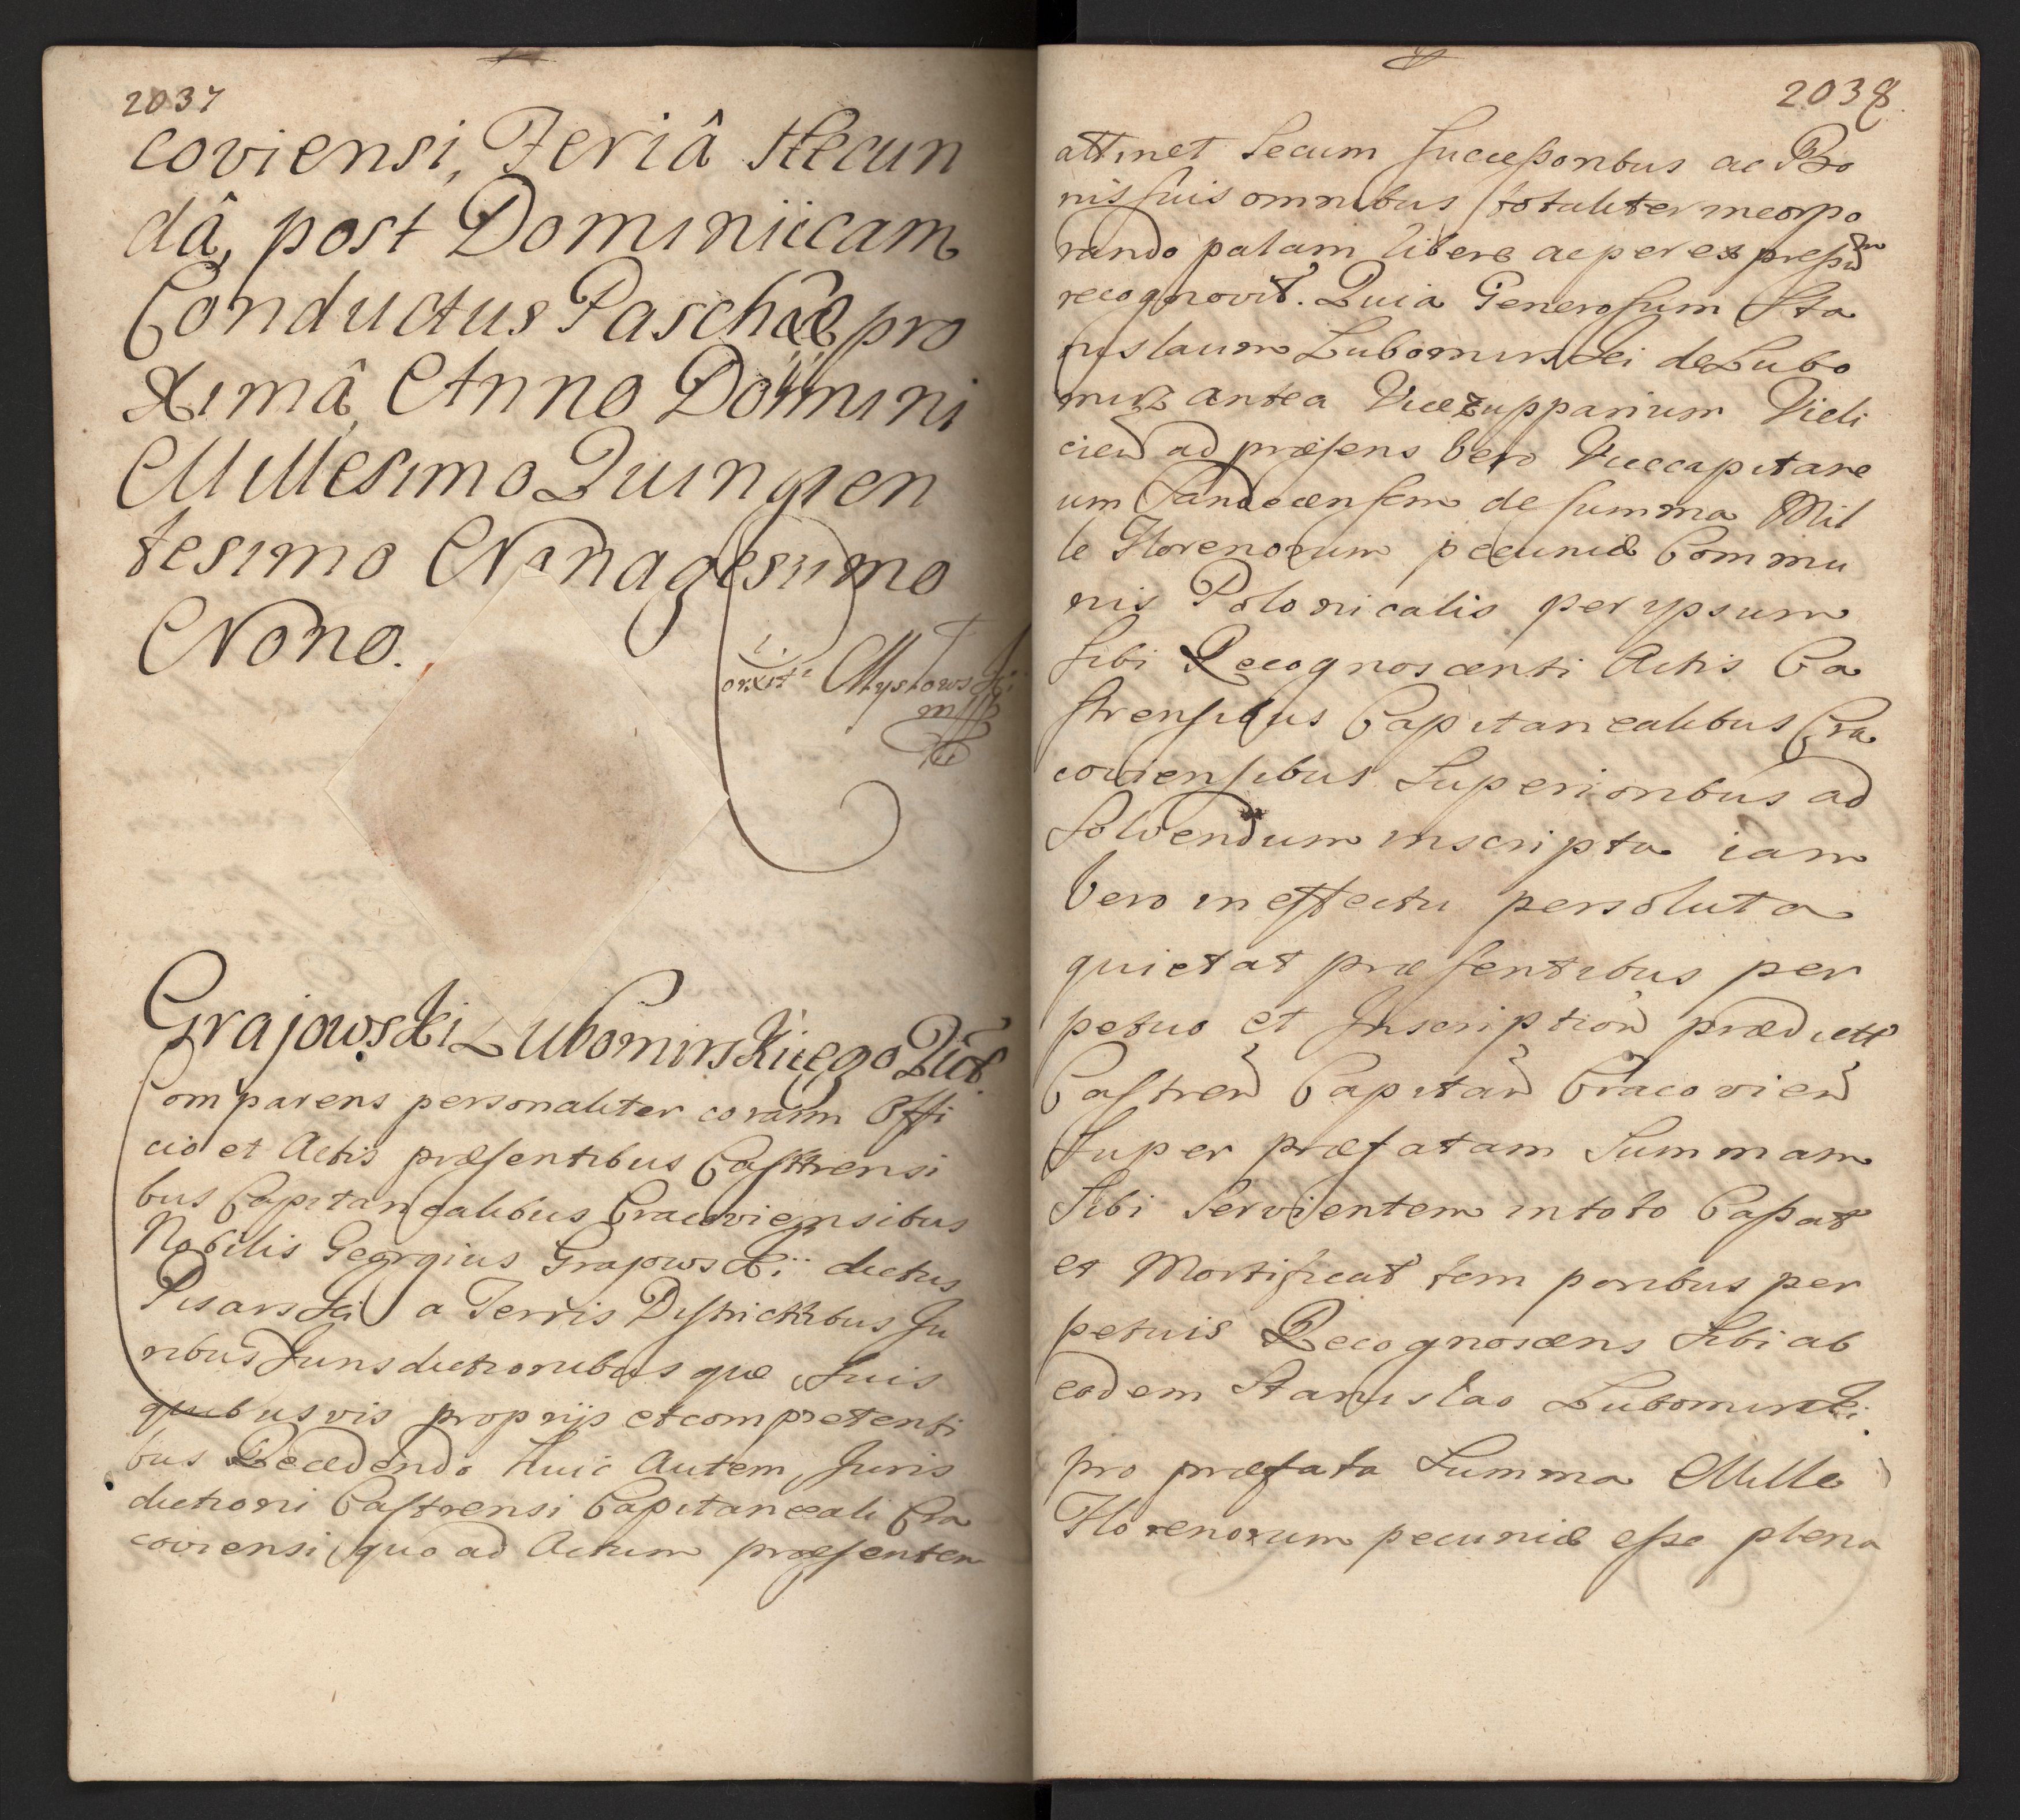 2037
coviensi, Feriâ Secun
dâ, post Dominiicam
Conductus Paschæ pro
ximâ, Anno Domini
Millesimo Quingen
tesimo Nonagesimo
Nono.
Grajowski Lubomirskiego Quit.
Comparens personaliter coram Offi
cio et Actis præsentibus Castrensi
bus Capitanealibus Cracoviensibus
Nobilis Georgius Grajowski dictus
Pisarski a Terris Districtibus Ju
ribus Jurisdictionibus que suis
quibusvis proprijs et competenti
bus Recedendo Huic Autem, Juris
dictioni Castrensi Capitaneali Cra
coviensi quo ad Actum præsentem
2038
attinet secum successoribus ac Bo
nis suis omnibus totaliter incorpo
rando palam libere ac per expressũ
recognovit. Quia Generosum Sta
nislaum Lubomirski de Lubo
mirz antea Vicezupparium Vieli
cien ad præsens vero Vicecapitane
um Sandecensem de summa Mil
le Florenorum pecuniæ Commu
nis Polonicalis per ipsum
sibi Recognoscenti Actis Ca
strensibus Capitanealibus Cra
coviensibus Superioribus ad
Solvendum inscripta iam
vero in effectu persoluta
quietat præsentibus per
petuo et Inscription prædictt
Castren Capitan Cracovien
Super præfatam Summam
Sibi Servientem in toto Cassat
et Mortificat temporibus per
petuis Recognoscens Sibi ab
eodem Stanislao Lubomirski
pro præfata Summa Mille
Florenorum pecuniæ esse plena